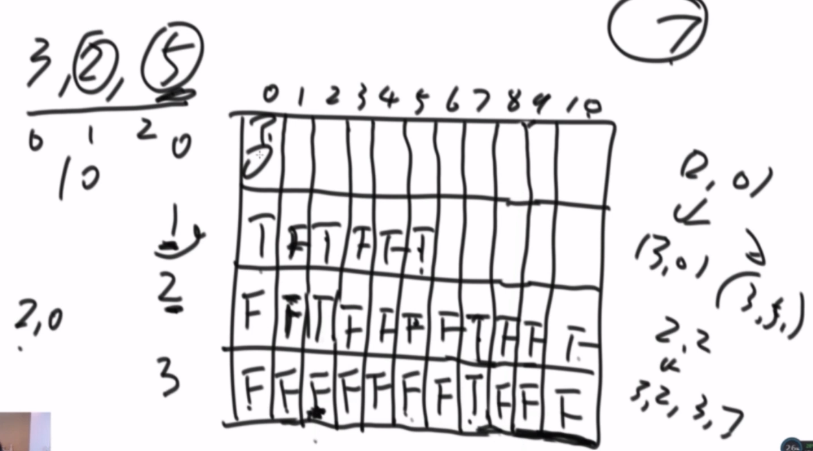 7
3, 2, 5
0 1 2
10
0 1 2 3 4 5 6 7 8 9 10
0
1 T F T F T T
2 F F T F F F F T F F T
3 F F F F F F F T F F F
2,0
(3,0)
(3,5,)
2,2
3,2,3,7